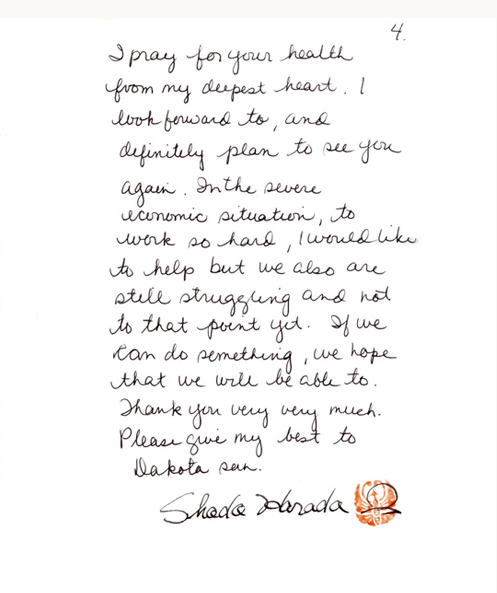 4.
I pray for your health
from my deepest heart. I
look forward to, and
definitely plan to see you
again. In the severe
economic situation, to
work so hard, I would like
to help but we also are
still struggling and not
to that point yet. If we
can do something, we hope
that we will be able to.
Thank you very very much.
Please give my best to
Dakota san.
Shodo Harada